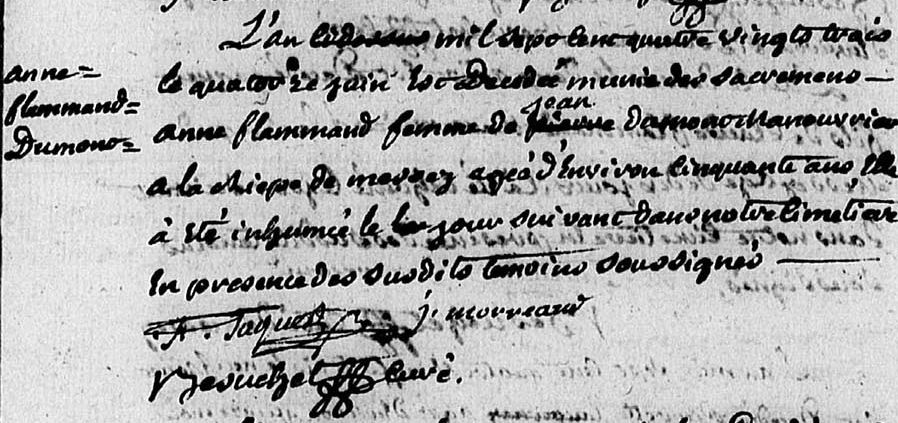 L'an mil sept cent quatre vingts trois
anne =
flammand =
Dumont =
le quatorze juin est Decedée munie des sacremens —
jean
anne flammand femme de pierre dumont manouvrier
a la de agéé d'Environ Cinquante ans Elle
à été inhumée le jour suivant dans notre Cimetiere
En presence des susdits temoins soussignés —
A. Jaquet j. morreaux
curé.